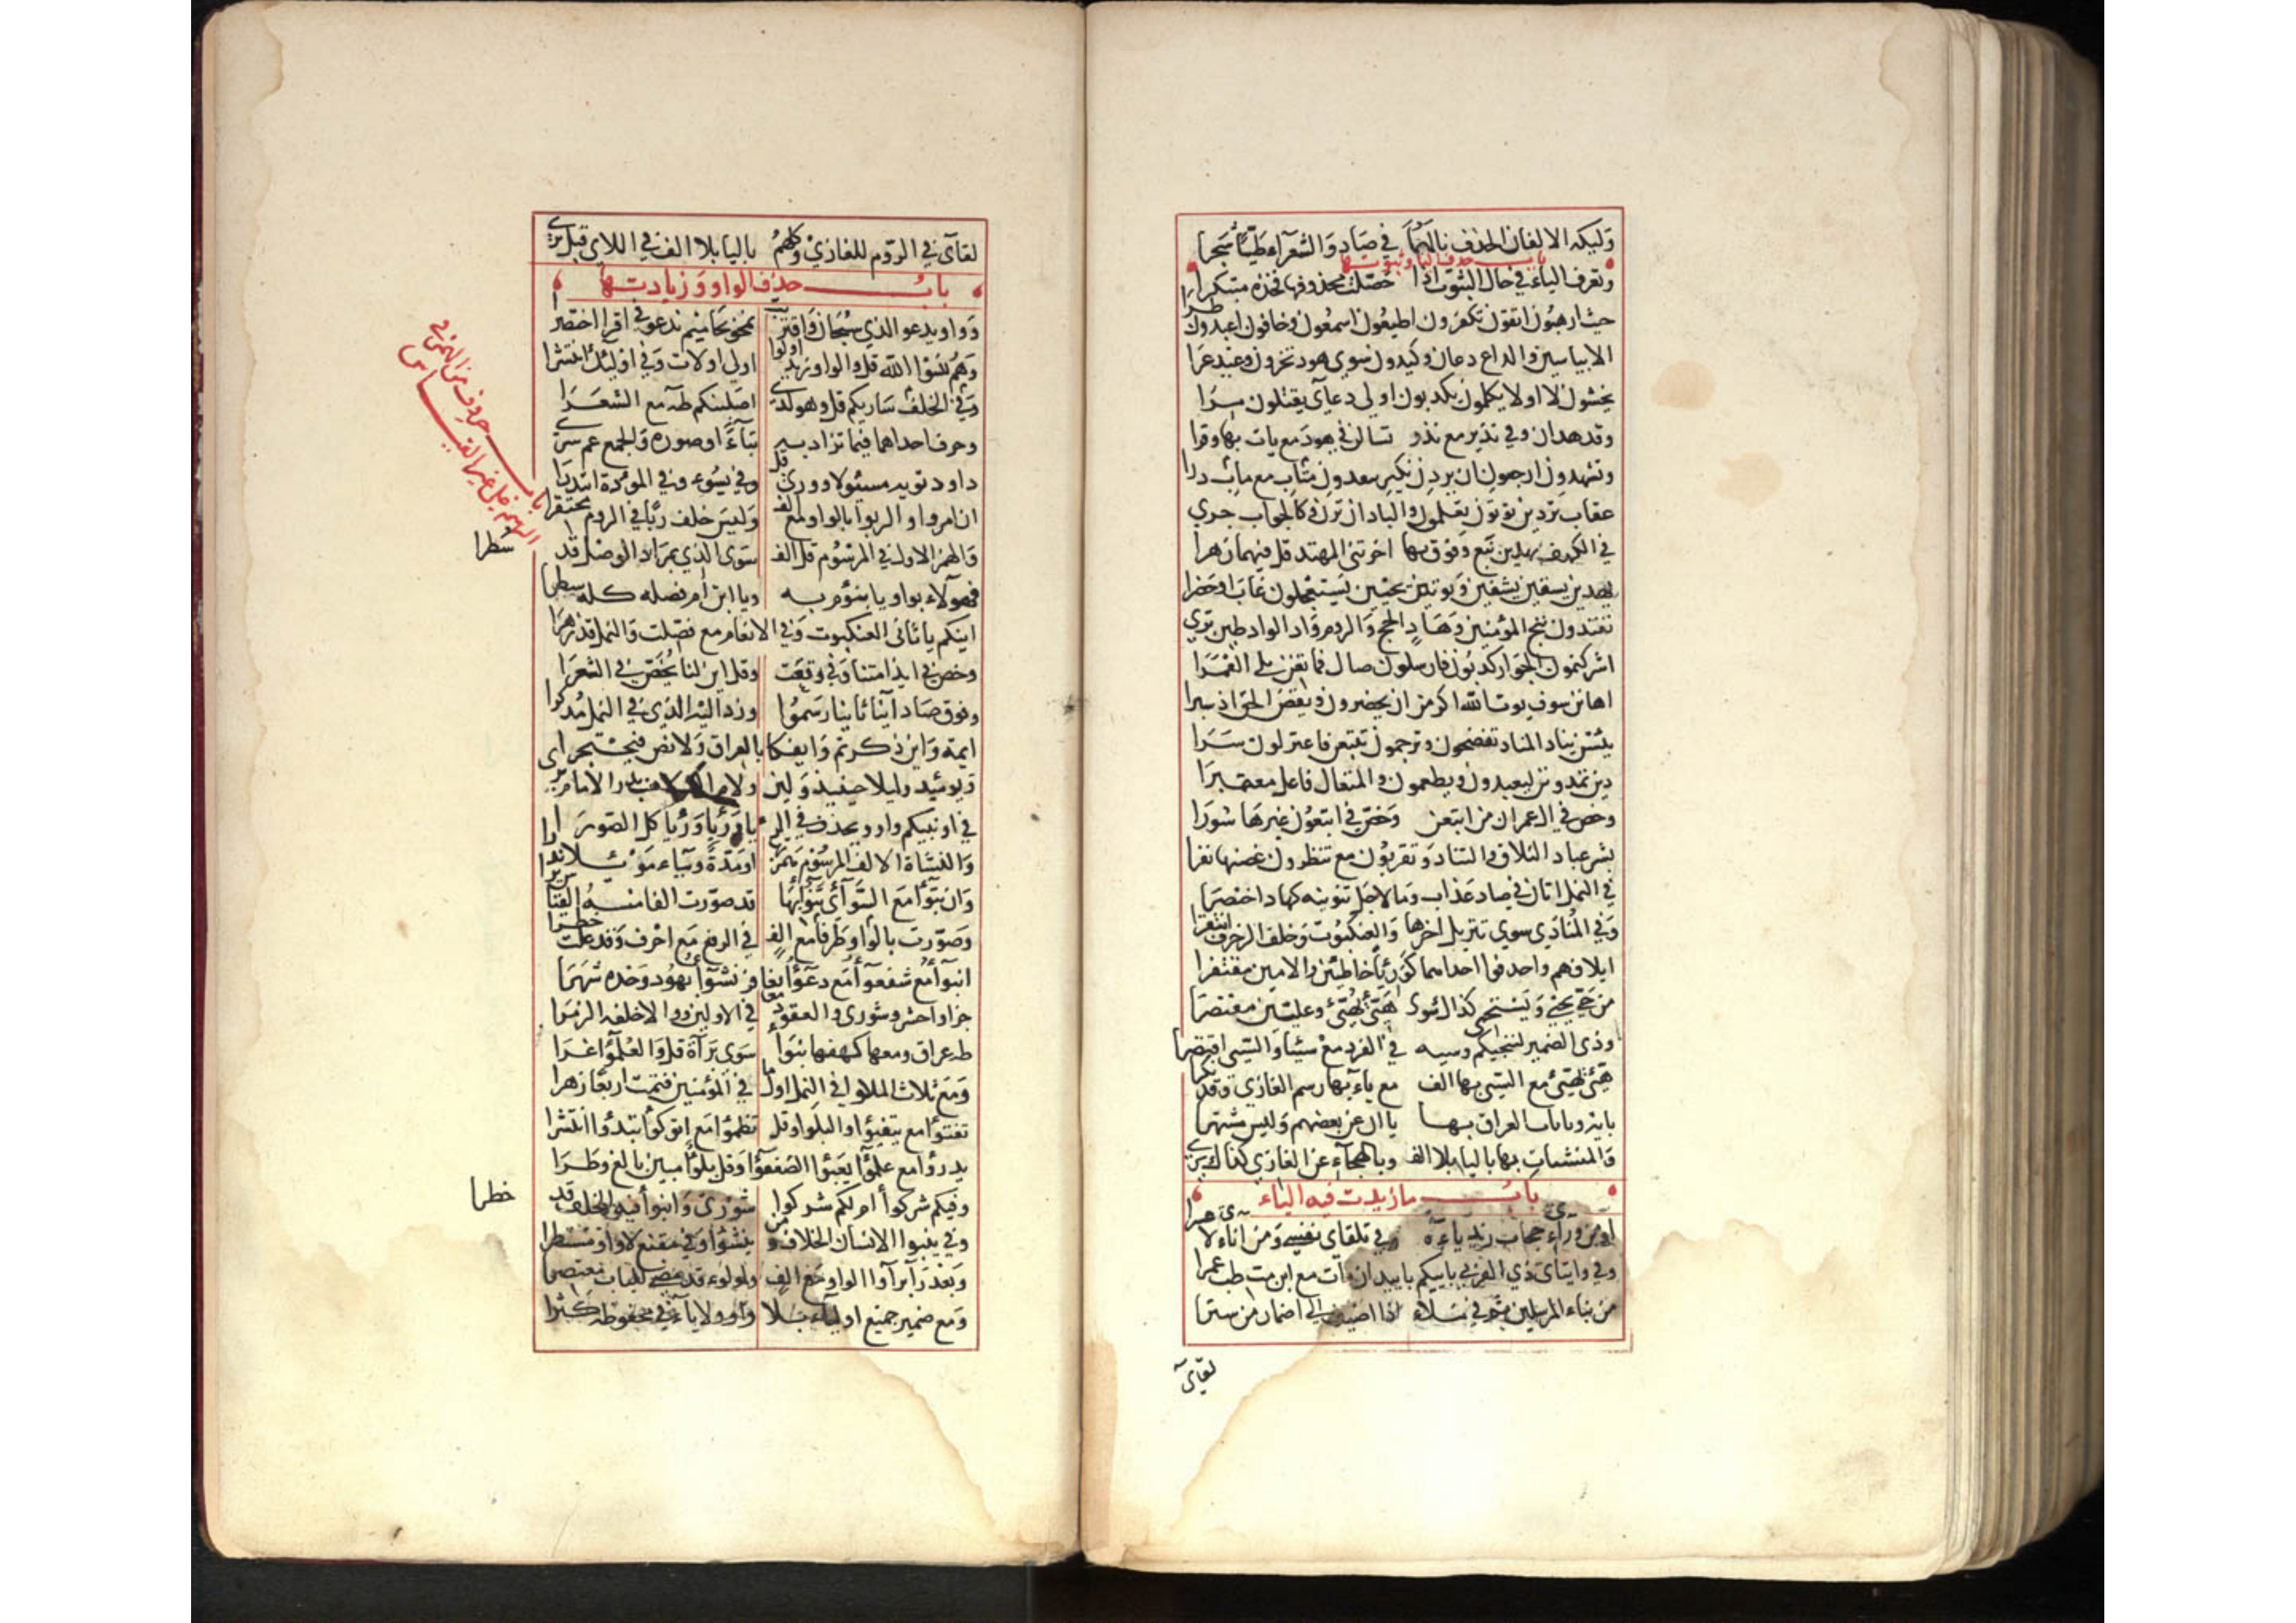 وليكه الالفان الحذف نالهما في صاد والشعراء طيبا شجرا
باب حذف الياء وثبوتها
وتعرف الياء في حال الثبوت اذا حصلت محذوفها فخذه مبتكرا
حيث ارهبون اتقون تكفرون اطيعون اسمعون وخافون اعبدون طرا
الا بياسين والداع دعان وكيدون سوى هود تخزون وعيد عرا
يخشون لا اولا يكلمون يكذبون اولى دعاى يقتلون مرا
وقد هدان وفي نذير مع نذر تسالن في هود مع يات بها وقرا
وتشهدون ارجعون ان يردن نكير ينقذون متاب مع ماب درا
عقاب تردين تؤتون تعلمون والباد ان ترن وكالجواب جرى
في الكهف يهدين نبغ وفوق بها اخرتن المهتد قل فيهما زهرا
يهدين يسقين يشفين ويؤتين يحيين يستعجلون غاب او حضرا
تفندون ننج المؤمنين وهاد الحج والروم واد الواد طبن ثرى
اشركتمون الجوار كذبون فارسلون صال فما تغن يلى القمرا
اهانن سوف يوت الله اكرمن ان يحضرون ويقض الحق اذ سبرا
يسرى يناد المناد تفضحون وترجمون تتبعن فاعتزلون سرا
دين تمدونن ليعبدون ويطعمون والمتعال فاعل معتمرا
وخص في ال عمران من اتبعن وخص في اتبعون غيرها سورا
بشر عباد التلاق والتناد وتقربون مع تنظرون غصنها نضرا
في النمل اتان في صاد عذاب وما لاجل تنوينه كهاد اختصرا
وفي المنادى سوى تنزيل اخرها والعنكبوت وخلف الزخرف انتقرا
ايلافهم واحذفوا احداهما كورئيا خاطئين والاميين مقتفرا
من حي يحيي ويستحيي كذاك سوى هيئ يهيئ وعليين مقتصرا
وذى الضمير لنحييكم وسيئه في الفرد مع سيئا والسيئ اقتصرا
هيئ يهيئ مع السيئ بها الف مع ياءها رسم الغازي وقد نكرا
باية وبايات العراق بها ياان عن بعضهم وليس مشتهرا
والمنشئات بها بالياء بلا الف وبالهجاء عن الغازي كذاك يرى
باب ما زيدت فيه الياء
او من وراء حجاب زيد ياءه وفي تلقاى نفسي ومن اناء لا عسرا
وفي وايتاى ذي القربى باييكم باييد ان مات مع ان مت طب عمرا
من نباء المرسلين ثم في ملاء اذا اضيف الى اضمار من سترا
لقاى
لقاى في الروم للغازي وكلهم باليا بلا الف في اللاى قبل يرى
باب حذف الواو وزيادتها
وواو يدعو الذي سبحان واقتربت يمحو بحاميم ندعو في اقرا اختصرا
وهم نسوا الله قل والواو زيد اولوا اولى اولات وفي اولئك انتشرا
وفي الخلف ساريكم قل وهو لدى اصلبنكم طه مع الشعرا
وحرف احداهما فيما تزاد به بناء او صورة والجمع عم سرى
داود تؤيه مسئولا وورى قل وفي يسوء وفي الموءدة ابتدرا
ان امروا والربوا بالواو مع الف وليس خلف ربا في الروم محتقرا
باب حروف من الهمز وقعت في الرسم على غير القياس
والهمز الاول في المرسوم قل الف سوى الذي بمراد الوصل قد سطرا
سطرا
فهولاء بواو يا بنؤم به ويا ابن ام فصله كله سطرا
اينكم ياء ثانى العنكبوت وفي الانعام مع فصلت والنمل قد زهرا
وخص في ايذا متنا وفي وقعت وقل اين لنا يخص في الشعرا
وفوق صاد ائنا ثانيا رسموا وزد اليه الذي في النمل مدكرا
ايمة واين ذكرتم وايفكا بالعراق ولا نص فيحتجر
ويومئيذ وليلا حينئيذ ولين ولام الف لاهب بدر الامام سرى
في اونبيكم واو ويحذف في الرءيا ورؤيا ورئيا كل الصور
والنشاة الالف المرسوم همز او مدة وبياء موئلا ندرا
وان تبوا مع السواى تنوا بها قد صورت الفا منه القياس برا
وصورت بالواو طرفا مع الف في الرفع مع احرف وقد علت خطرا
انبوا مع شفعوا مع دعوا بغافر نشوا بهود وحده شهرا
جزاوا حشر وشورى والعقود معا في الاولين ووالا خلفه الزمرا
طه عراق ومعها كهفها نبوا سوى براة قل والعلموا غرا
ومع ثلاث الملا في النمل اول ما في المؤمنين فتمت اربعا زهرا
تفتوا مع يتفيوا والبلوا وقل تظموا مع اتوكوا يبدوا انتشرا
يدروا مع علموا يعبوا الضعفوا وقل بلوا مبين بالغ وطرا
وفيكم شركوا ام لكم شركوا شورى وانبوا فيه الخلف قد خطرا
خطرا
وفي ينبوا الانسان الخلاف ومن ينشوا وفي مقنع لا واو مستطرا
وبعد را برآوا الواو مع الف ولولوء قد مضى للباب معتصرا
ومع ضمير جميع اولياء بلا واو ولا ياء في مخفوضه كثرا